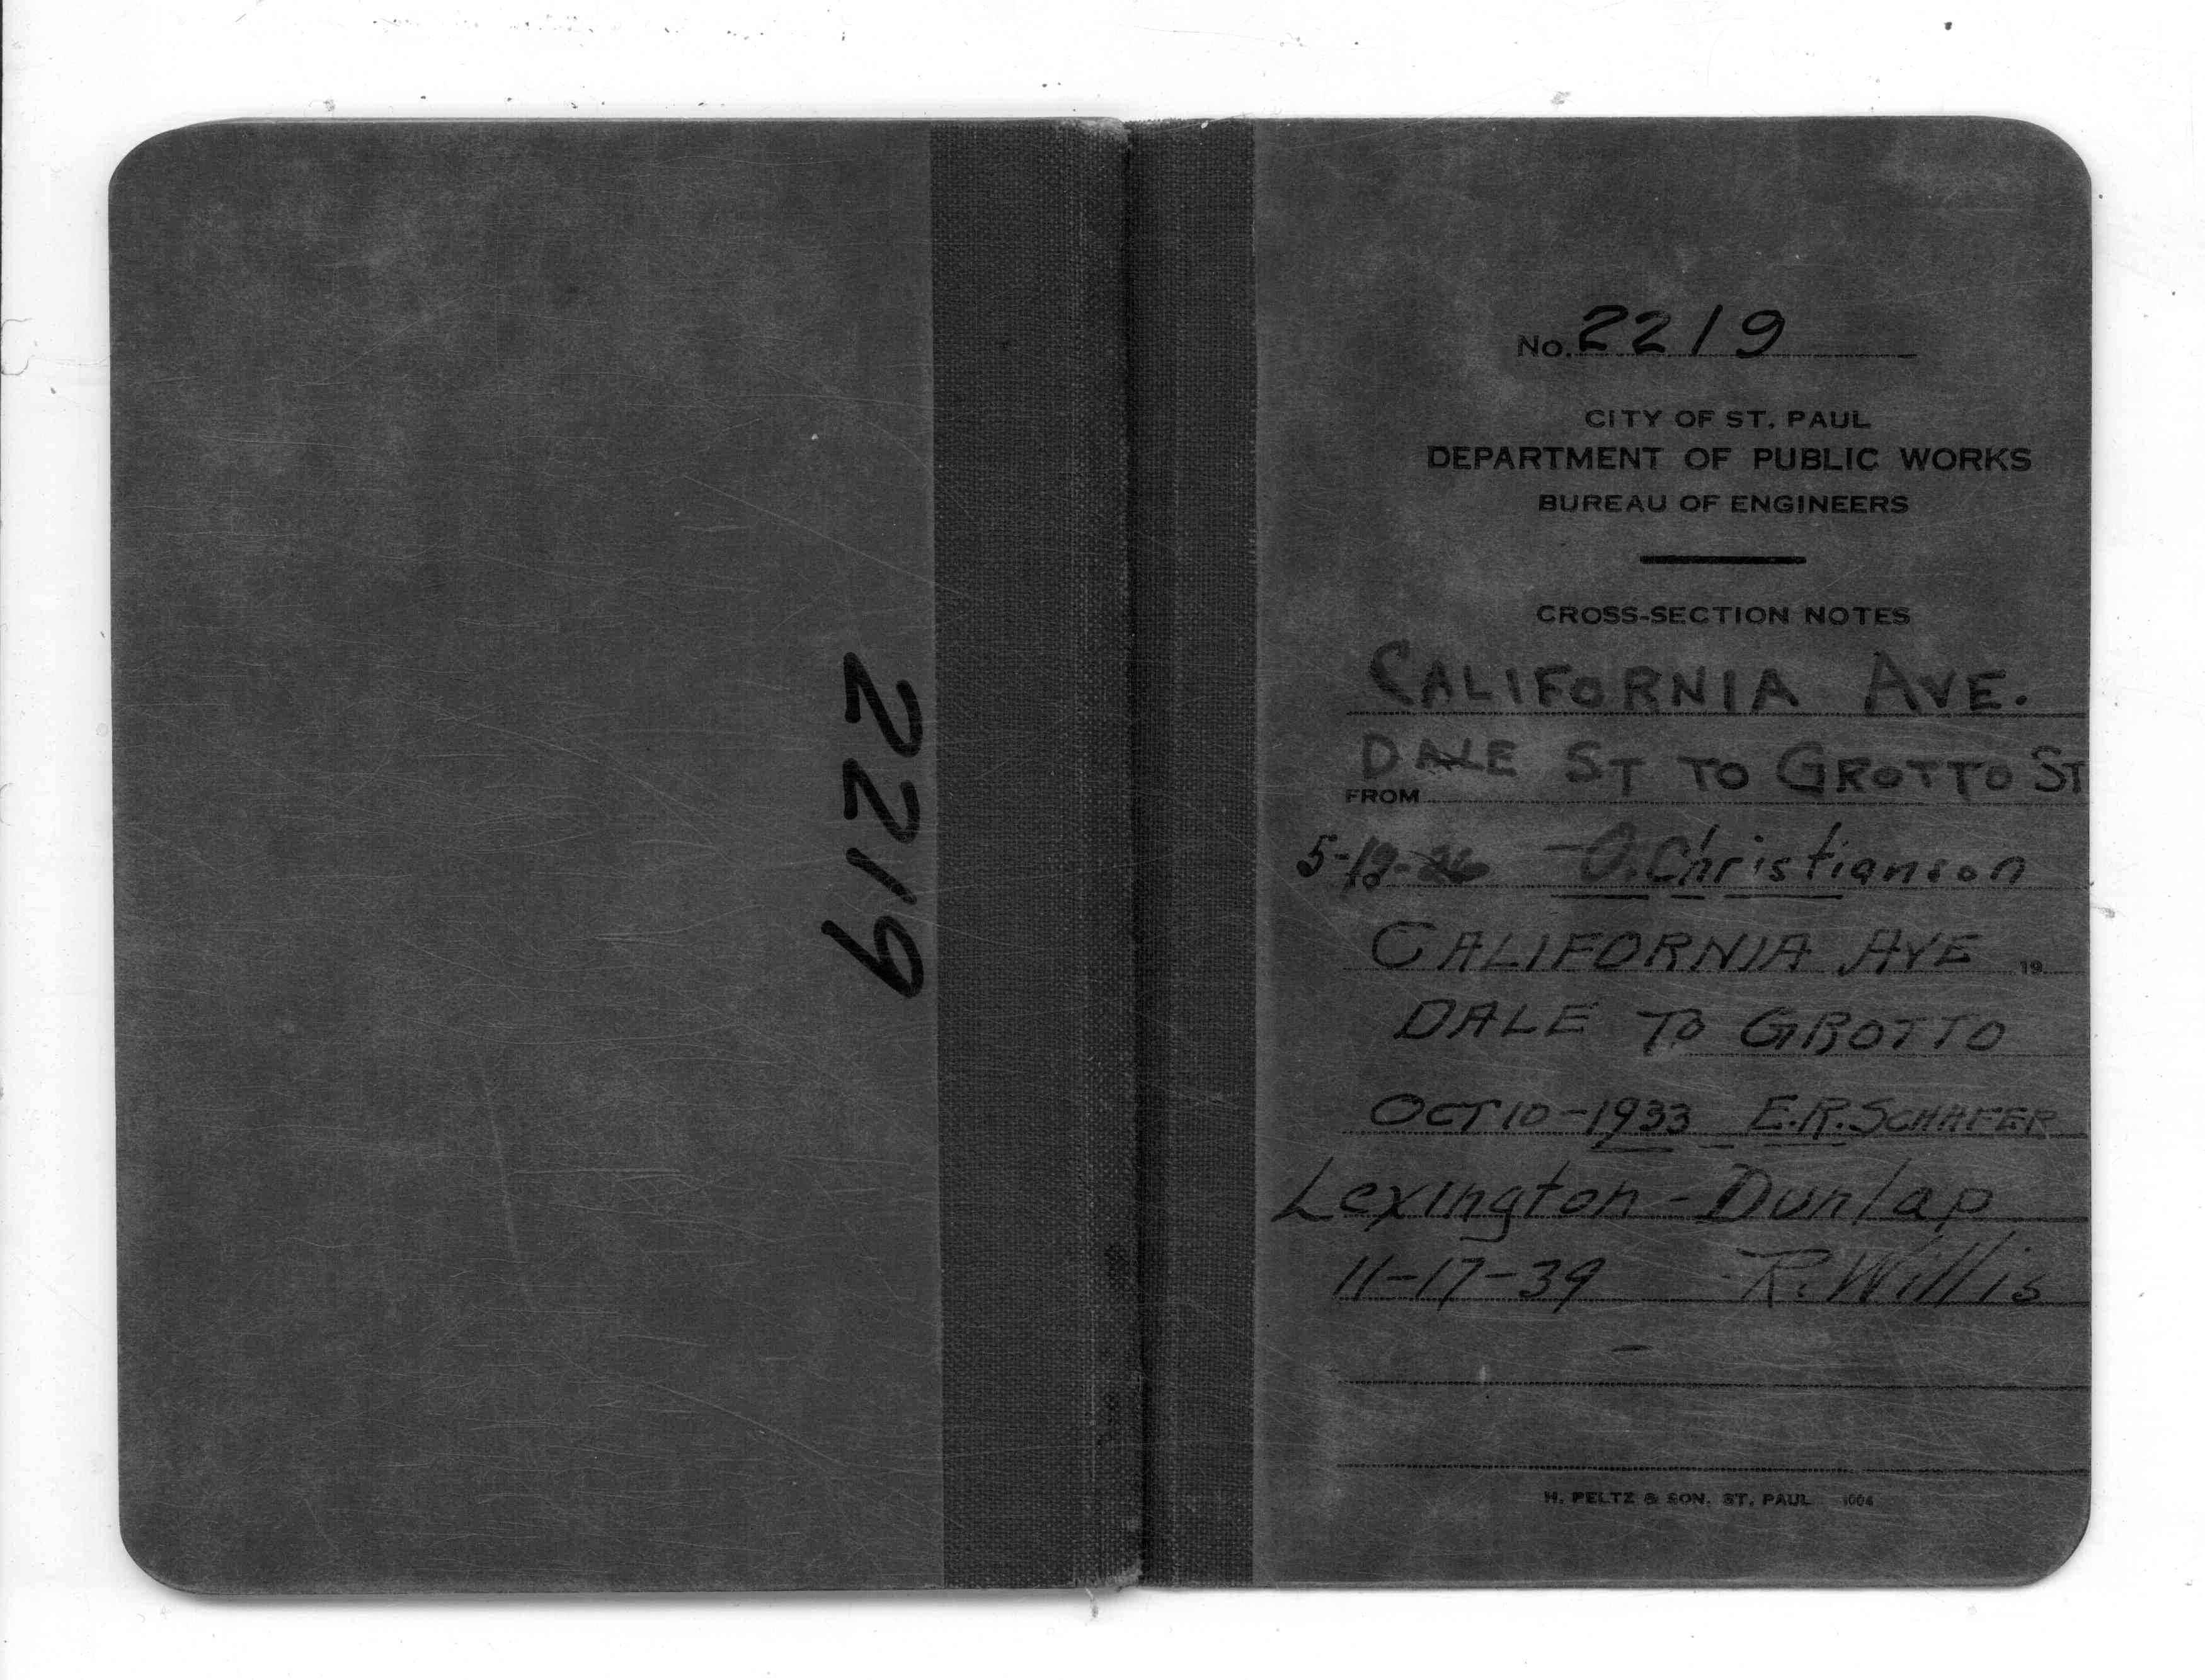 2219
No. 2219
CITY OF ST. PAUL
DEPARTMENT OF PUBLIC WORKS
BUREAU OF ENGINEERS
CROSS-SECTION NOTES
CALIFORNIA AVE.
DALE ST TO GROTTO ST
FROM
5-19-26 - O. Christianson
TO
CALIFORNIA AVE 19
DALE TO GROTTO
OCT 10-1933 E.R. SCHAFER
Lexington - Dunlap
11-17-39 R. Willis
H. PELTZ & SON, ST. PAUL 1004